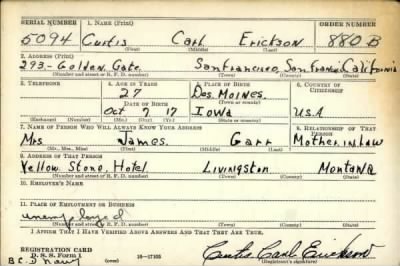 SERIAL NUMBER 1. NAME (Print) ORDER NUMBER
5094 Curtis Carl Erickson 880B
(First) (Middle) (Last)
2. ADDRESS (Print)
293-Golden Gate San Francisco, San Franci, California
(Number and street or R. F. D. number) (Town) (County) (State)
3. TELEPHONE 4. AGE IN YEARS 5. PLACE OF BIRTH 6. COUNTRY OF CITIZENSHIP
27 Des Moines
DATE OF BIRTH (Town or county)
Oct 7 17 Iowa USA
(Exchange) (Number) (Mo.) (Day) (Yr.) (State or country)
7. NAME OF PERSON WHO WILL ALWAYS KNOW YOUR ADDRESS 8. RELATIONSHIP OF THAT PERSON
Mrs James Garr Mother in law
(Mr., Mrs., Miss) (First) (Middle) (Last)
9. ADDRESS OF THAT PERSON
Yellow Stone, Hotel Livingston Montana
(Number and street or R. F. D. number) (Town) (County) (State)
10. EMPLOYER'S NAME
11. PLACE OF EMPLOYMENT OR BUSINESS
unemployed
(Number and street or R. F. D. number) (Town) (County) (State)
I AFFIRM THAT I HAVE VERIFIED ABOVE ANSWERS AND THAT THEY ARE TRUE.
REGISTRATION CARD
D. S. S. Form 1 (over) 16-17105 Curtis Carl Erickson
(Registrant's signature)
Navy